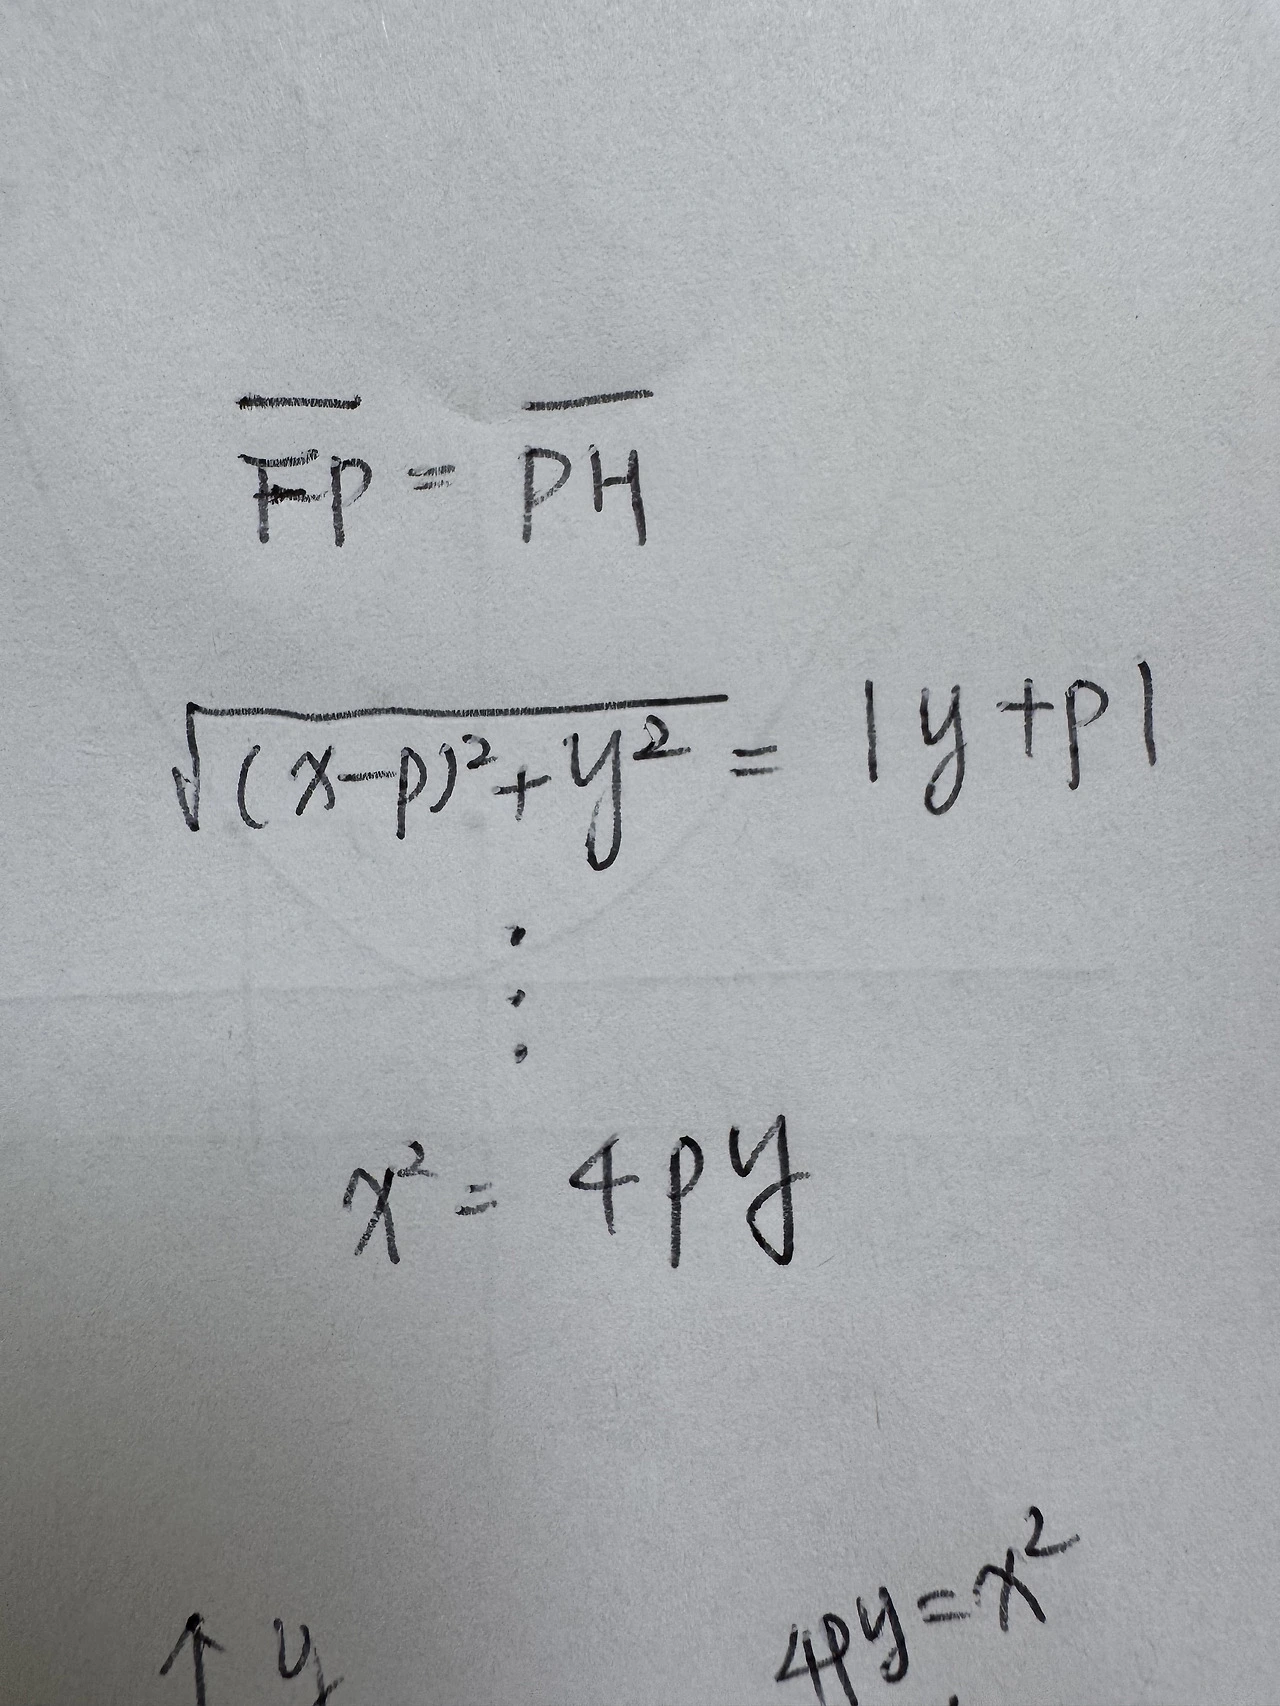 F̅P̅ = P̅H̅
√((x-p)²+y²) = |y+p|
⋮
x² = 4py
4py=x²
↑ y